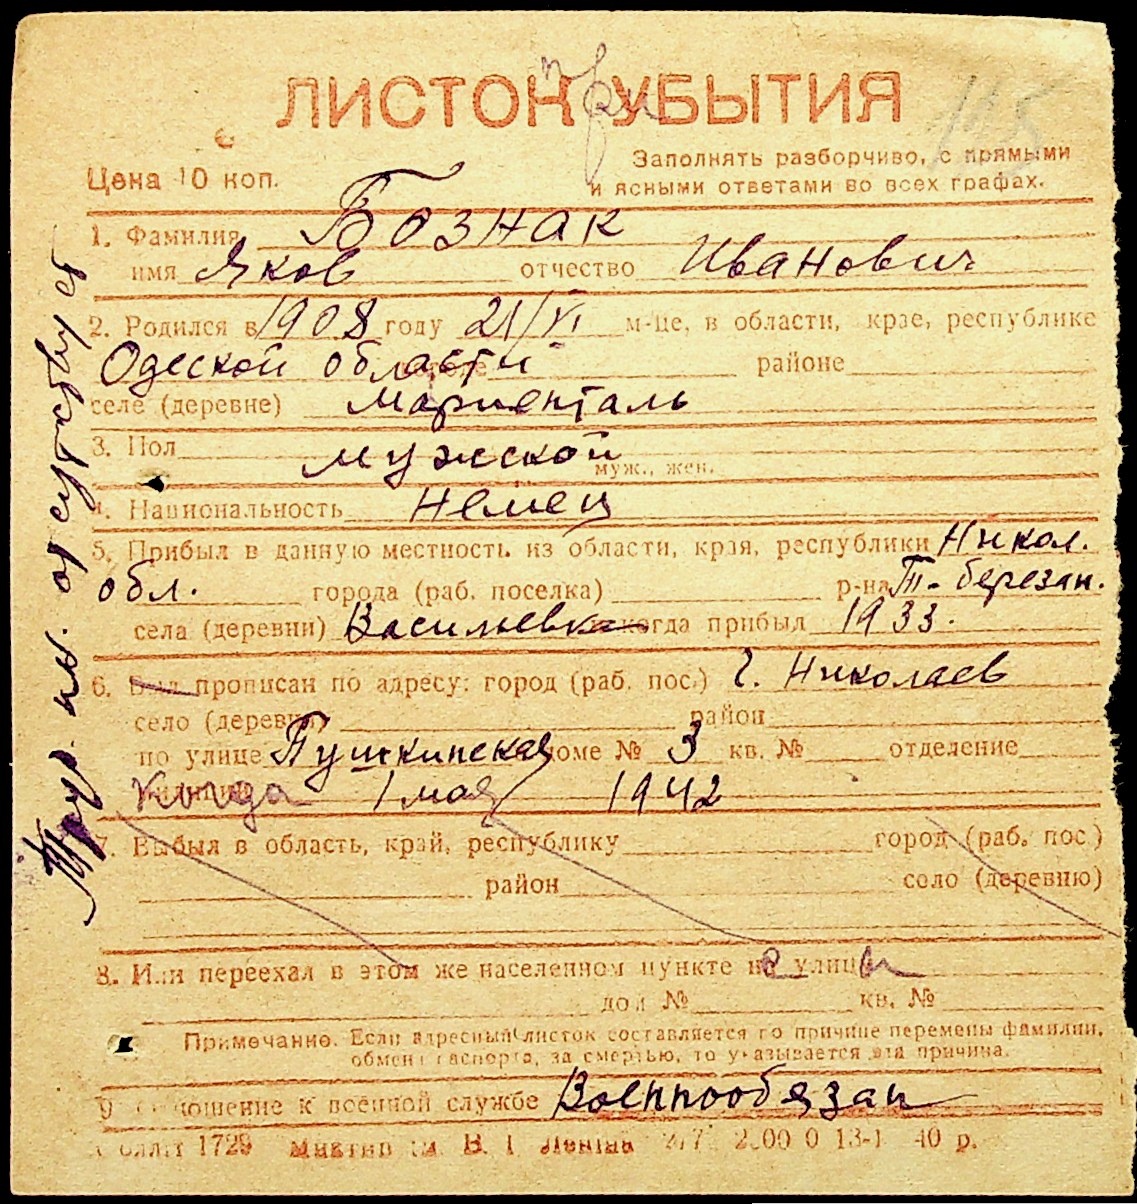 ЛИСТОК УБЫТИЯ
при
Заполнять разборчиво, с прямыми
Цена 10 коп.
и ясными ответами во всех графах.
1. Фамилия Бознак
имя Яков отчество Иванович
2. Родился в 1908 году 21/VI м-це, в области, крае, республике
Одеской области городе районе
селе (деревне) Мариенталь
3. Пол мужской
муж., жен.
4. Национальность Немец
5. Прибыл в данную местность из области, края, республики Никол.
обл. города (раб. поселка) р-на Т-березан.
села (деревни) Васильевка когда прибыл 1933.
6. Был прописан по адресу: город (раб. пос.) г. Николаев
село (деревня) район
по улице Пушкинская доме № 3 кв. № отделение
милиции Когда 1 мая 1942
7. Выбыл в область, край, республику город (раб. пос.)
район село (деревню)
8. Или переехал в этом же населенном пункте на улицу
дом № кв. №
Примечание. Если адресный листок составляется по причине перемены фамилии,
обмена паспорта, за смертью, то указывается эта причина.
9. Отношение к военной службе Военнообязан
1729 им. В. И. Ленина 40 р.